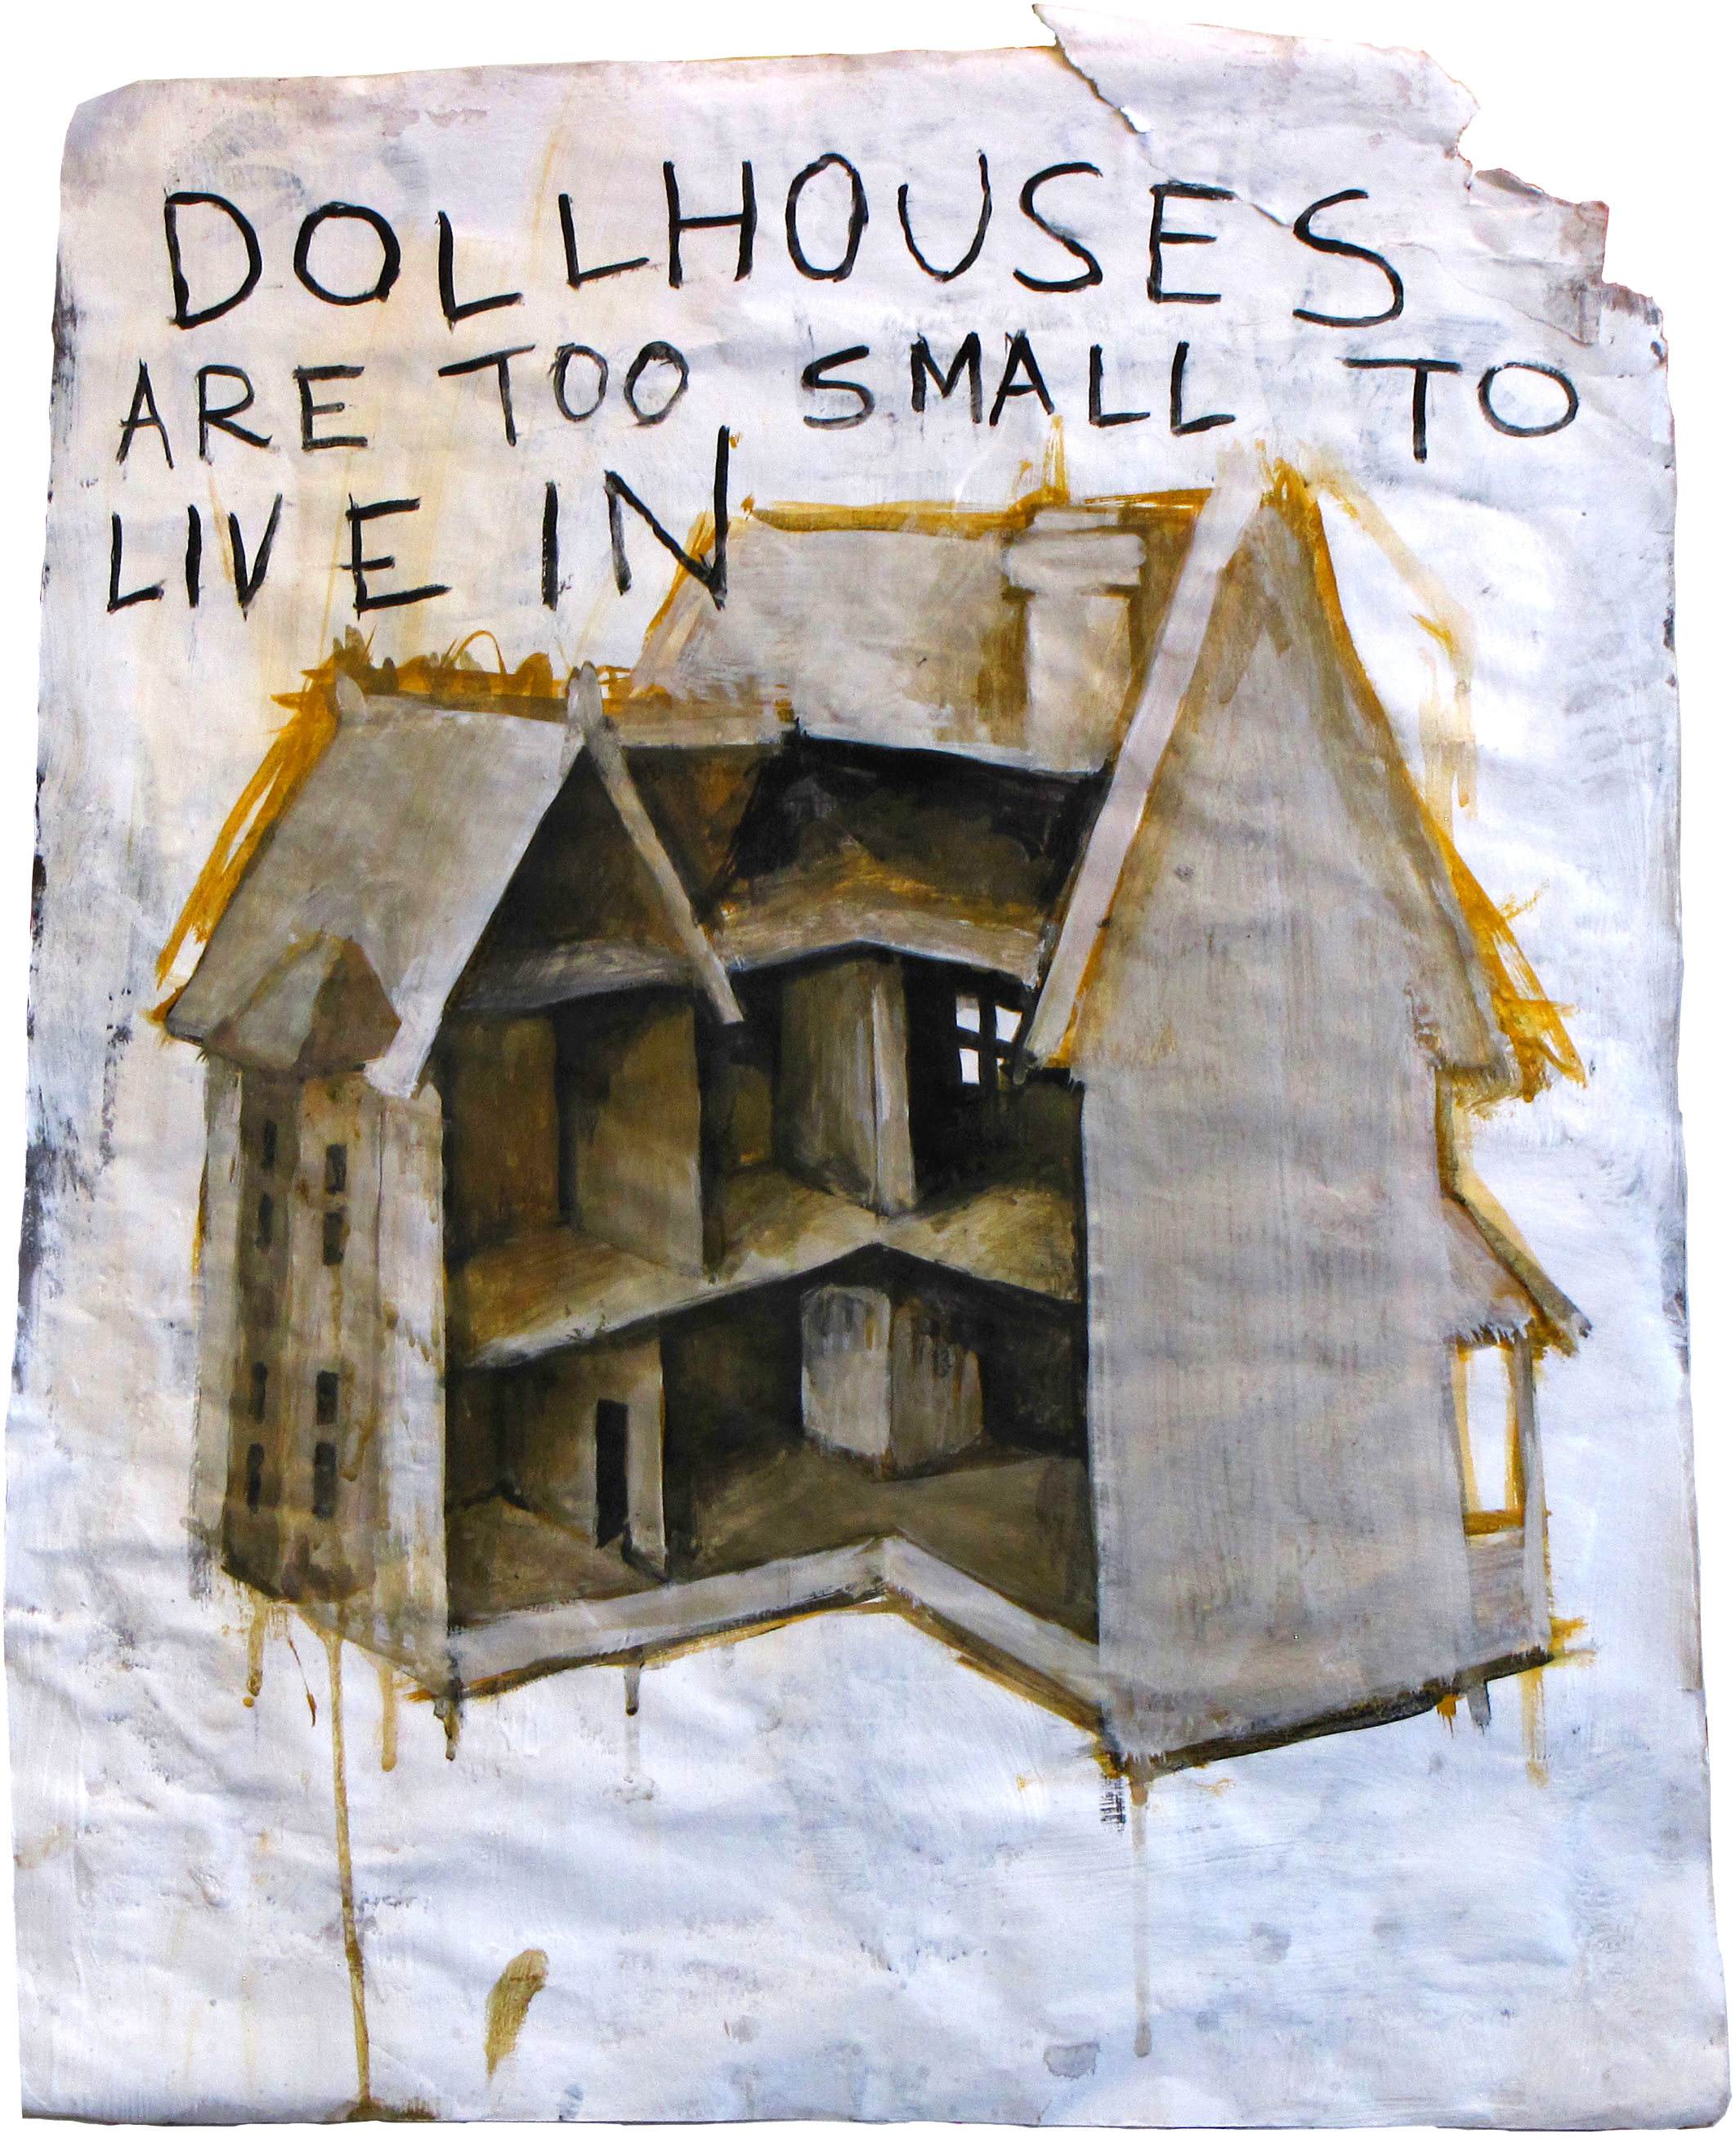 DOLLHOUSES
ARE TOO SMALL TO
LIVE IN